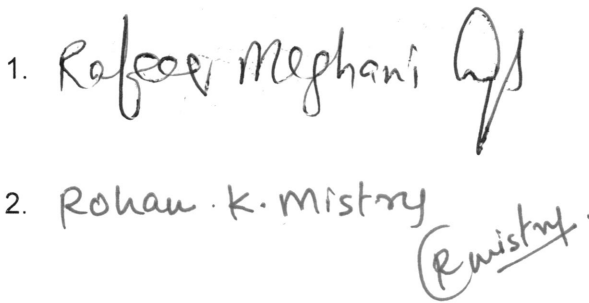 1. Rafeeq Meghani
2. Rohan. K. Mistry
Rmistry.